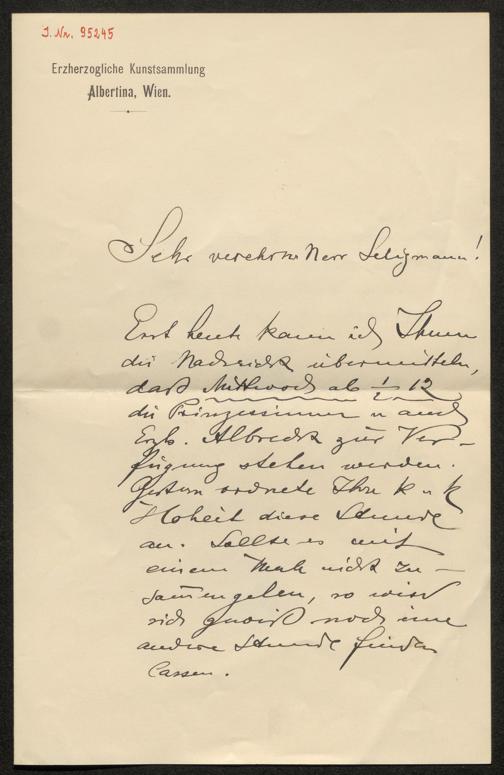 J. Nr. 95245
Erzherzogliche Kunstsammlung
Albertina, Wien.
Sehr verehrter Herr Seligmann!
Erst heute kann ich Ihnen
die Nachricht übermitteln,
daß Mittwoch ab ½ 12
die Prinzessinnen u auch
Erzh. Albrecht zur Ver-
fügung stehen werden.
Gestern ordnete Ihre k u k
Hoheit diese Stunde
an. Sollte es mit
einem Male nicht zu-
sam̄engehen, so wird
sich gewiß noch eine
andere Stunde finden
lassen.